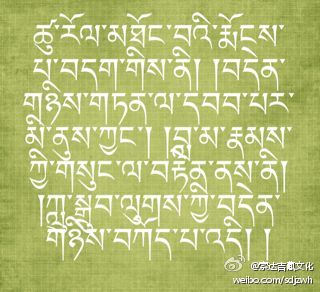 ཚུ་རོལ་མཐོང་བའི་རྨོངས་
པ་བདག་གིས་ནི། །བདེན་
གཉིས་གཏན་ལ་དབབ་པར་
མི་ནུས་ཀྱང་། །བླ་མ་རྣམས་
ཀྱི་གསུང་ལ་བརྟེན་ནས་ནི།
།ཀླུ་སྒྲུབ་ལུགས་ཀྱི་བདེན་
གཉིས་བཀོད་པ་འདི། །
@索达吉藏文化
weibo.com/sdjzwh